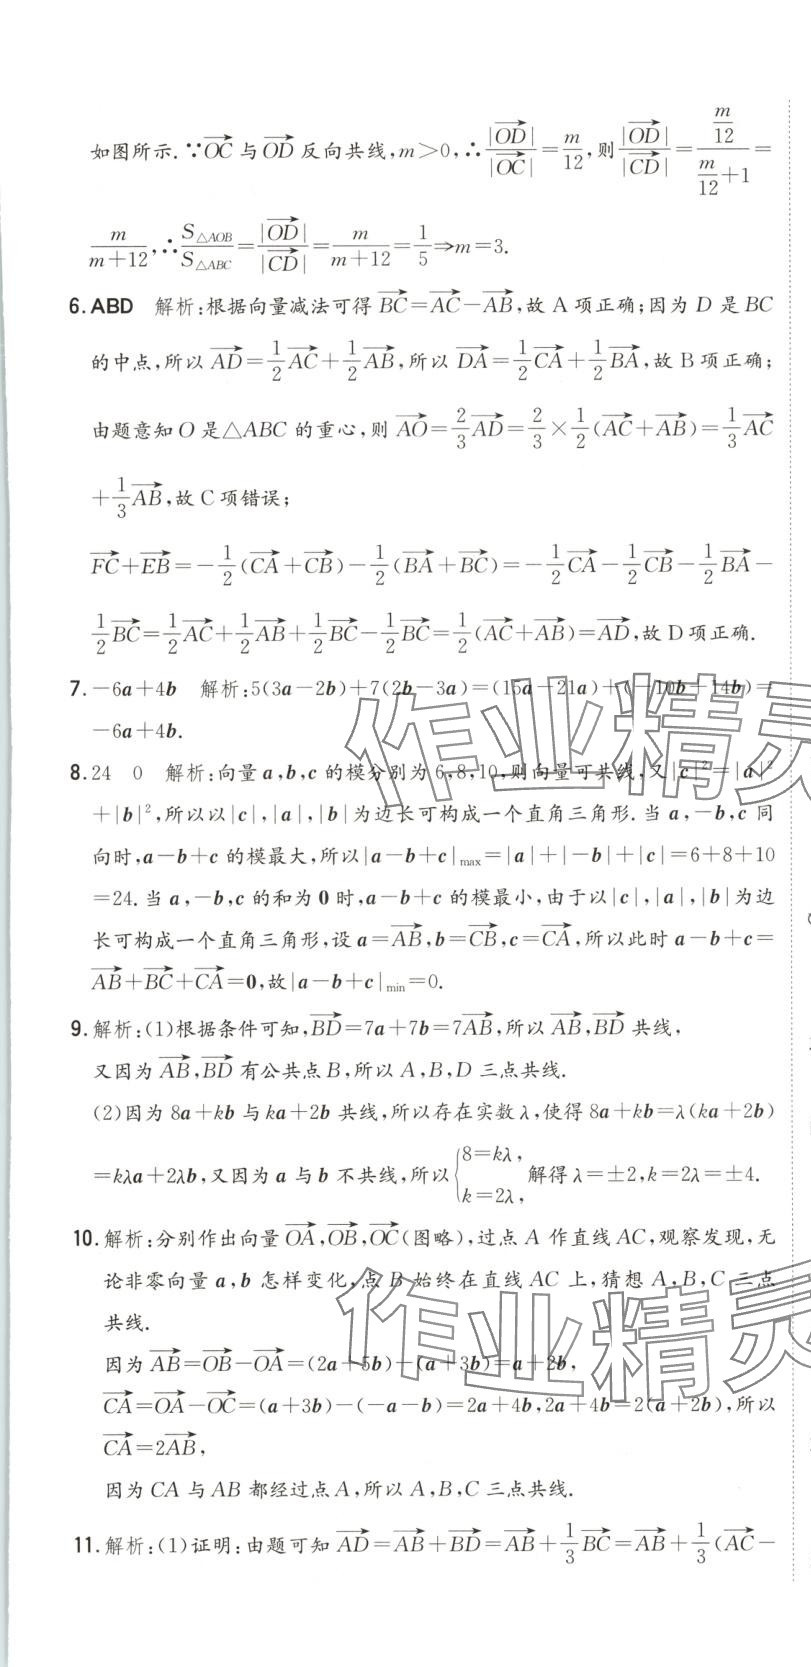 如图所示.∵$\overrightarrow{OC}$与$\overrightarrow{OD}$反向共线,m>0,∴$\frac{|\overrightarrow{OD}|}{|\overrightarrow{OC}|}=\frac{m}{12}$,则$\frac{|\overrightarrow{OD}|}{|\overrightarrow{CD}|}=\frac{\frac{m}{12}}{\frac{m}{12}+1}=$
$\frac{m}{m+12}$,∴$\frac{S_{△AOB}}{S_{△ABC}}=\frac{|\overrightarrow{OD}|}{|\overrightarrow{CD}|}=\frac{m}{m+12}=\frac{1}{5}$⇒m=3.
6.ABD 解析:根据向量减法可得$\overrightarrow{BC}=\overrightarrow{AC}-\overrightarrow{AB}$,故A项正确;因为D是BC
的中点,所以$\overrightarrow{AD}=\frac{1}{2}\overrightarrow{AC}+\frac{1}{2}\overrightarrow{AB}$,所以$\overrightarrow{DA}=\frac{1}{2}\overrightarrow{CA}+\frac{1}{2}\overrightarrow{BA}$,故B项正确;
由题意知O是△ABC的重心,则$\overrightarrow{AO}=\frac{2}{3}\overrightarrow{AD}=\frac{2}{3}×\frac{1}{2}(\overrightarrow{AC}+\overrightarrow{AB})=\frac{1}{3}\overrightarrow{AC}$
$+\frac{1}{3}\overrightarrow{AB}$,故C项错误;
$\overrightarrow{FC}+\overrightarrow{EB}=-\frac{1}{2}(\overrightarrow{CA}+\overrightarrow{CB})-\frac{1}{2}(\overrightarrow{BA}+\overrightarrow{BC})=-\frac{1}{2}\overrightarrow{CA}-\frac{1}{2}\overrightarrow{CB}-\frac{1}{2}\overrightarrow{BA}-$
$\frac{1}{2}\overrightarrow{BC}=\frac{1}{2}\overrightarrow{AC}+\frac{1}{2}\overrightarrow{AB}+\frac{1}{2}\overrightarrow{BC}-\frac{1}{2}\overrightarrow{BC}=\frac{1}{2}(\overrightarrow{AC}+\overrightarrow{AB})=\overrightarrow{AD}$,故D项正确.
7.-6a+4b 解析:5(3a-2b)+7(2b-3a)=(15a-21a)+(-10b+14b)=
-6a+4b.
8.24 0 解析:向量a,b,c的模分别为6,8,10,则向量可共线,又|c|²=|a|²
+|b|²,所以以|c|,|a|,|b|为边长可构成一个直角三角形.当a,-b,c同
向时,a-b+c的模最大,所以|a-b+c|$_{max}$=|a|+|-b|+|c|=6+8+10
=24.当a,-b,c的和为0时,a-b+c的模最小,由于以|c|,|a|,|b|为边
长可构成一个直角三角形,设a=$\overrightarrow{AB}$,b=$\overrightarrow{CB}$,c=$\overrightarrow{CA}$,所以此时a-b+c=
$\overrightarrow{AB}+\overrightarrow{BC}+\overrightarrow{CA}$=0,故|a-b+c|$_{min}$=0.
9.解析:(1)根据条件可知,$\overrightarrow{BD}$=7a+7b=7$\overrightarrow{AB}$,所以$\overrightarrow{AB}$,$\overrightarrow{BD}$共线,
又因为$\overrightarrow{AB}$,$\overrightarrow{BD}$有公共点B,所以A,B,D三点共线.
(2)因为8a+kb与ka+2b共线,所以存在实数λ,使得8a+kb=λ(ka+2b)
=kλa+2λb,又因为a与b不共线,所以$\begin{cases}8=kλ,\\k=2λ,\end{cases}$解得λ=±2,k=2λ=±4.
10.解析:分别作出向量$\overrightarrow{OA}$,$\overrightarrow{OB}$,$\overrightarrow{OC}$(图略),过点A作直线AC,观察发现,无
论非零向量a,b怎样变化,点B始终在直线AC上,猜想A,B,C三点
共线.
因为$\overrightarrow{AB}=\overrightarrow{OB}-\overrightarrow{OA}$=(2a+5b)-(a+3b)=a+2b,
$\overrightarrow{CA}=\overrightarrow{OA}-\overrightarrow{OC}$=(a+3b)-(-a-b)=2a+4b,2a+4b=2(a+2b),所以
$\overrightarrow{CA}=2\overrightarrow{AB}$,
因为CA与AB都经过点A,所以A,B,C三点共线.
11.解析:(1)证明:由题可知$\overrightarrow{AD}=\overrightarrow{AB}+\overrightarrow{BD}=\overrightarrow{AB}+\frac{1}{3}\overrightarrow{BC}=\overrightarrow{AB}+\frac{1}{3}(\overrightarrow{AC}-$
作业精灵
作业精灵